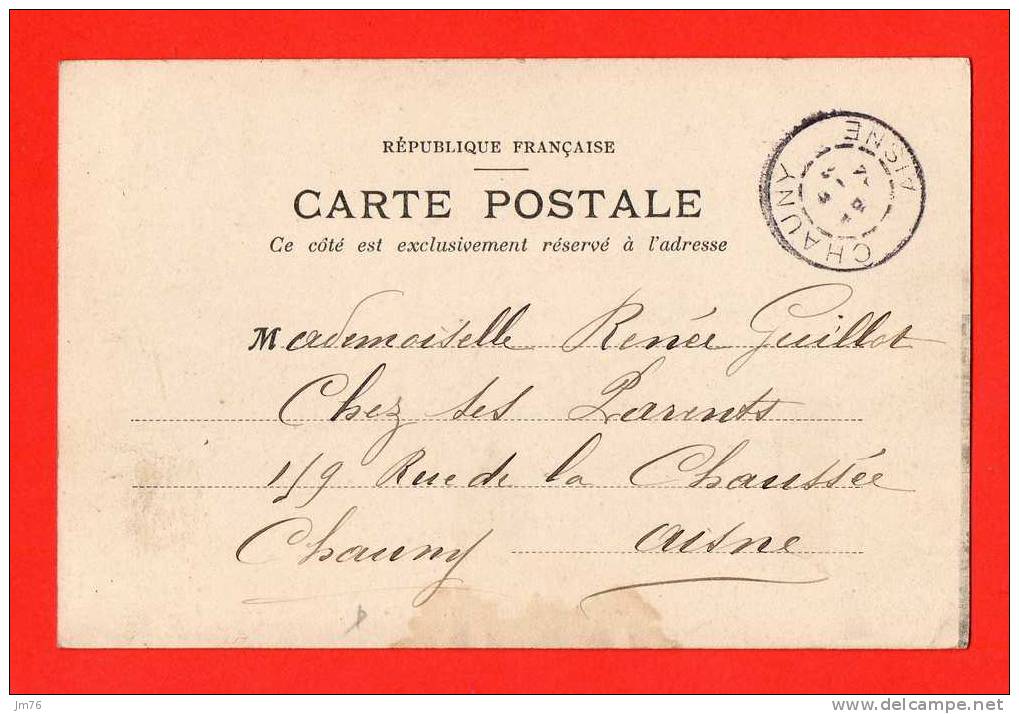 RÉPUBLIQUE FRANÇAISE
CARTE POSTALE
Ce côté est exclusivement réservé à l'adresse
CHAUNY AISNE
Mademoiselle Renée Guillot
Chez ses Parents
Rue de la Chaussée
Chauny Aisne
jm76
www.delcampe.net